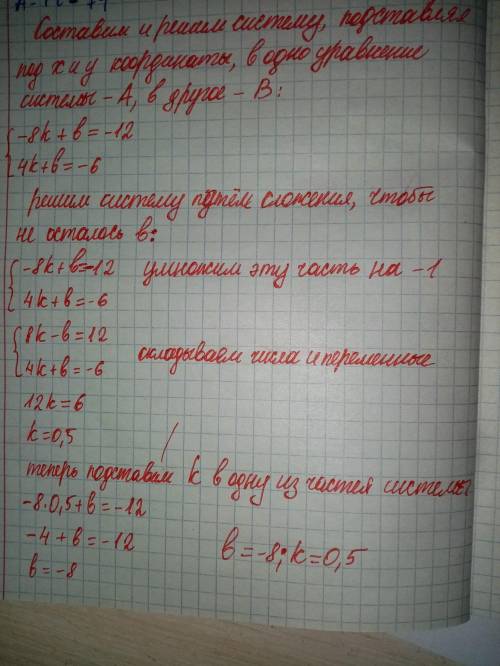 Составим и решим систему, подставляя
под x и y координаты, в одно уравнение
системы - A, в другое - B:
-8k + b = -12
4k + b = -6
решим систему путём сложения, чтобы
не осталось b:
-8k + b = -12 умножим эту часть на -1
4k + b = -6
8k - b = 12
4k + b = -6 складываем числа и переменные
12k = 6
k = 0,5
теперь подставим k в одну из частей системы
-8·0,5 + b = -12
-4 + b = -12
b = -8
b = -8; k = 0,5